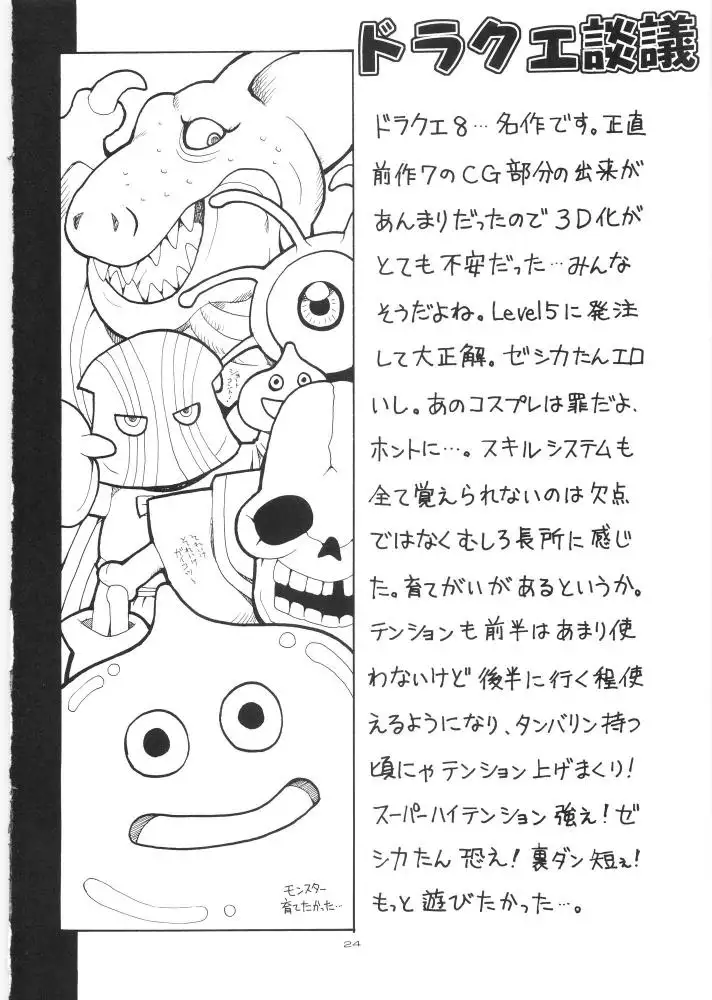 ドラクエ談議
ドラクエ8…名作です。正直
前作7のCG部分の出来が
あんまりだったので3D化が
とても不安だった…みんな
そうだよね。Level5に発注
して大正解。ゼシカたんエロ
いし。あのコスプレは罪だよ、
ホントに…。スキルシステムも
全て覚えられないのは欠点
ではなくむしろ長所に感じ
た。育てがいがあるというか。
テンションも前半はあまり使
わないけど後半に行く程使
えるようになり、タンバリン持つ
頃にゃテンション上げまくり!
スーパーハイテンション強ェ!ゼ
シカたん恐ェ!裏ダン短ェ!
もっと遊びたかった…。
モンスター
育てたかった…
24